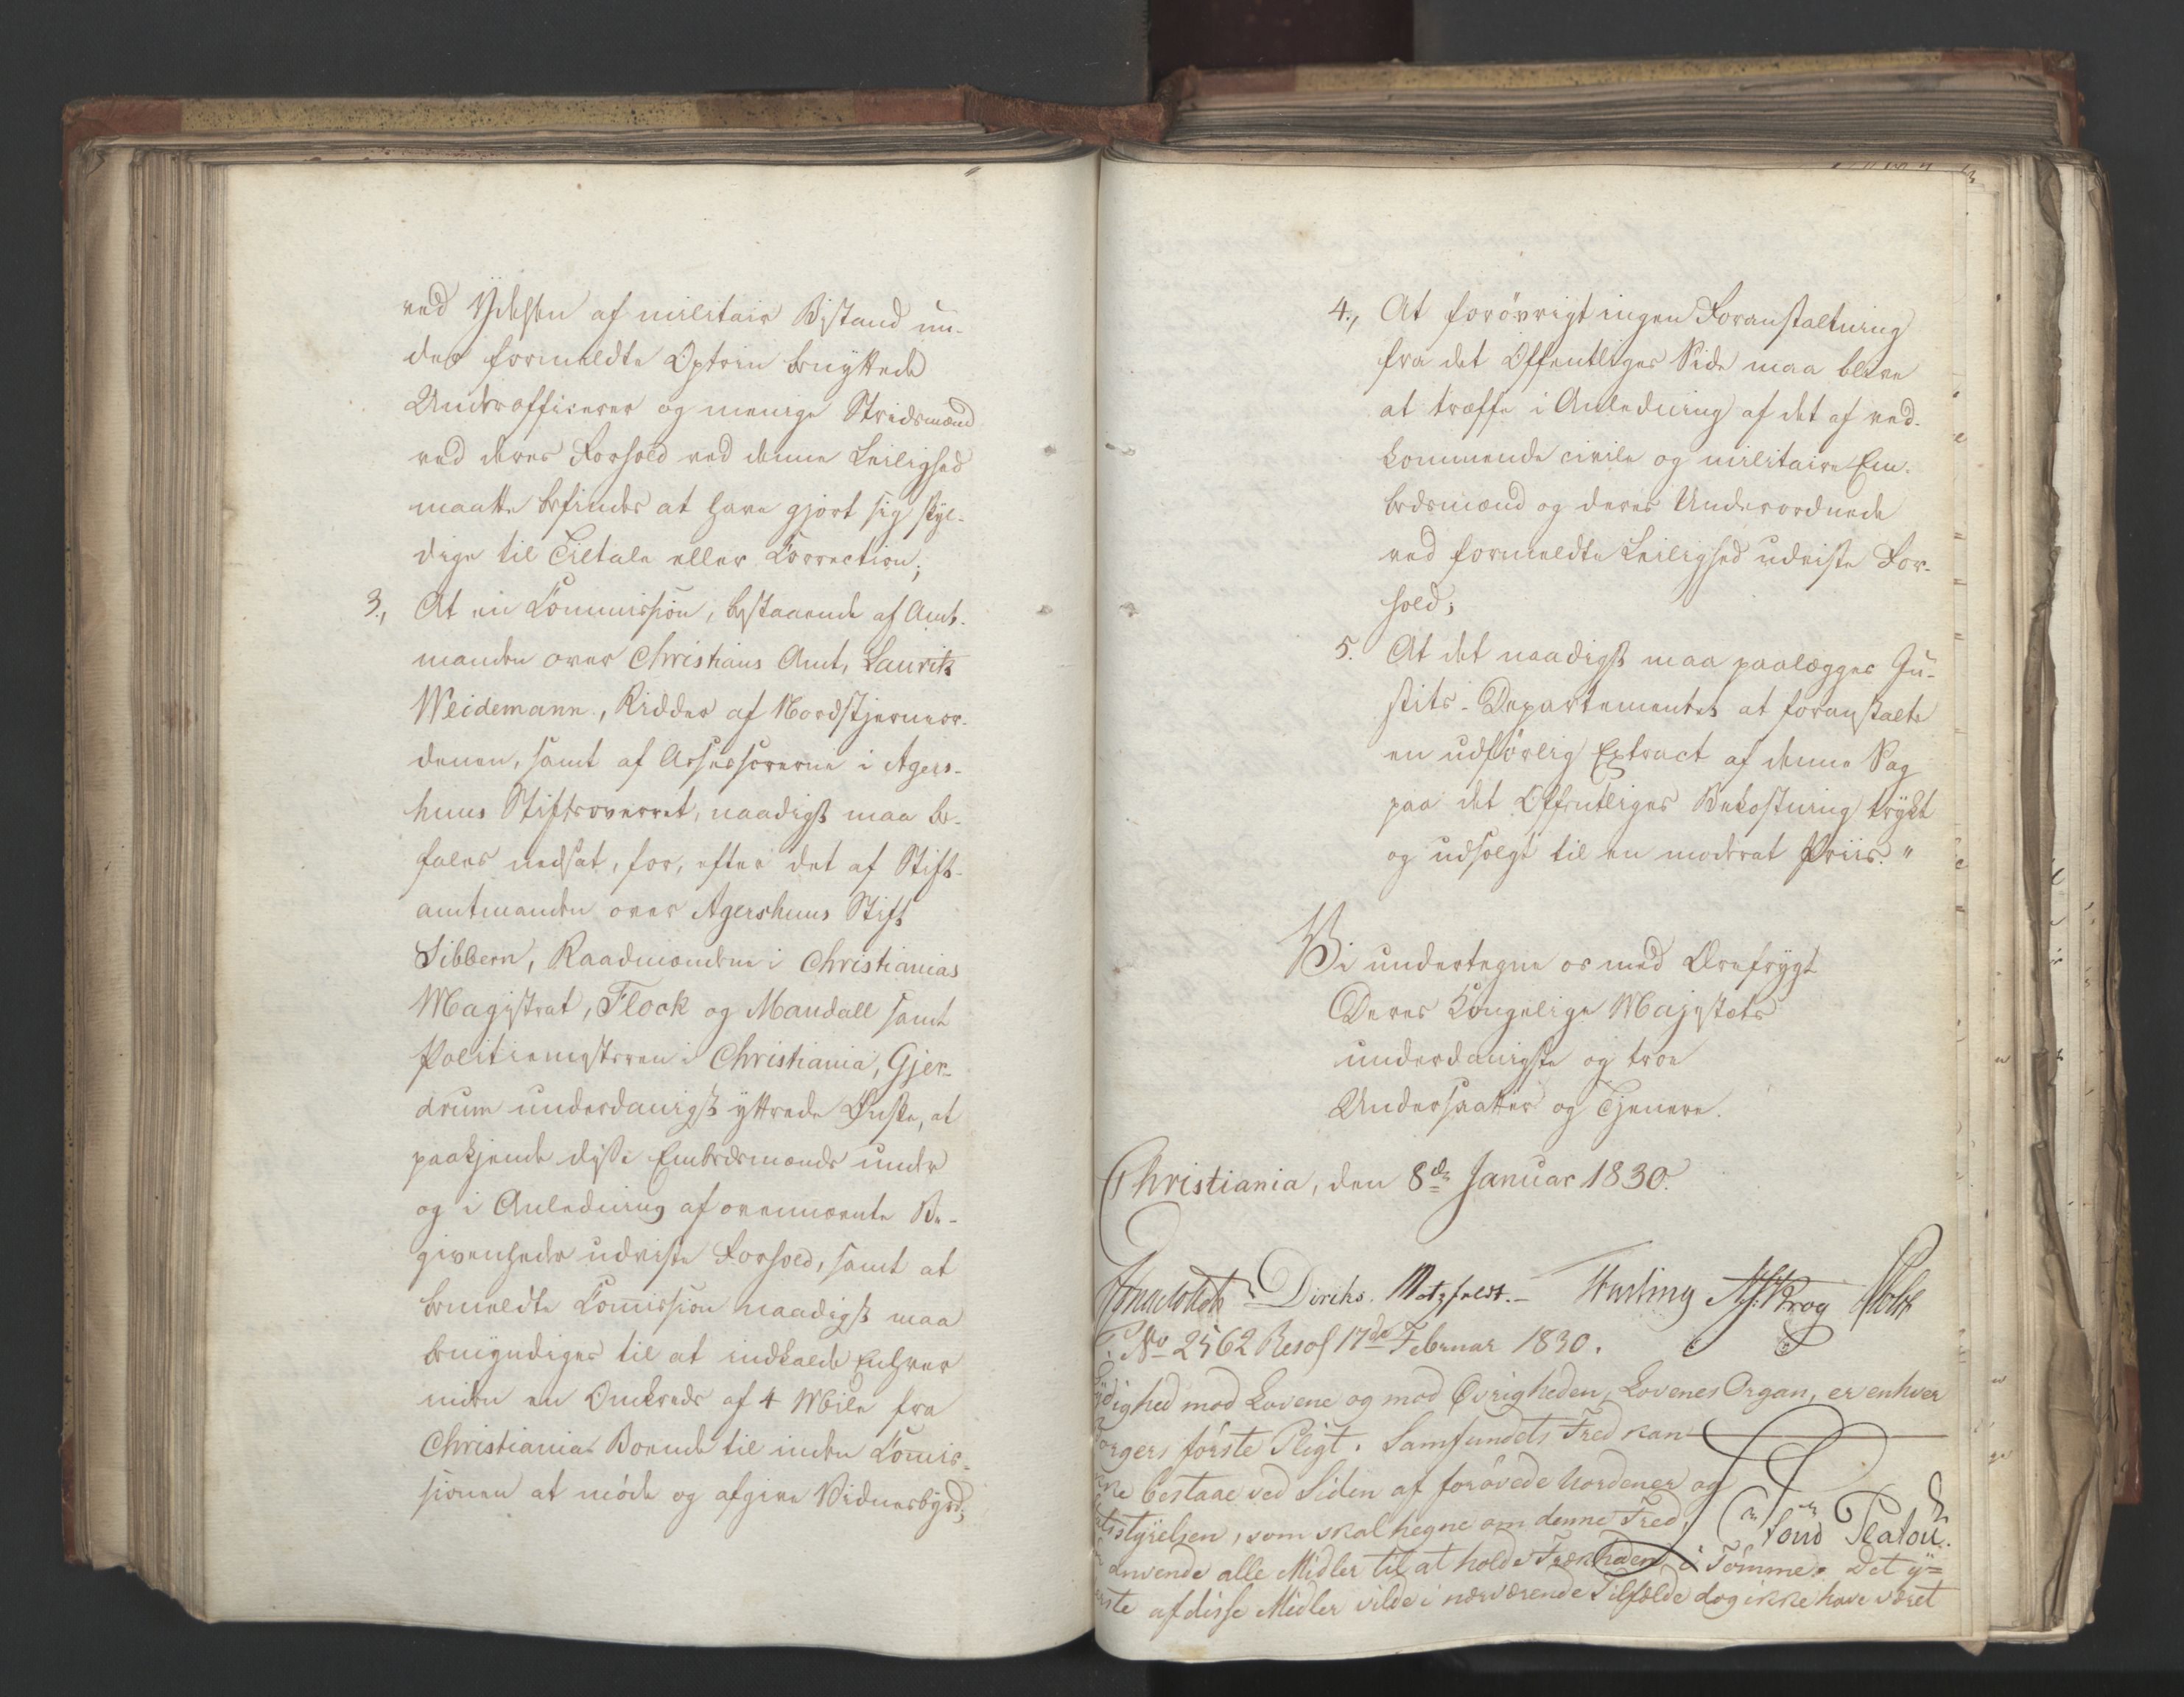 ved Ydelsen af militair Bistand un-
der formeldte Optrin benyttede
Underofficerer og menige Stridsmænd
ved deres Forhold ved denne Leilighed
maatte befindes at have gjort sig skyl-
dige til Tiltale eller Correction;
3., At en Commission, bestaaende af Amt-
manden over Christians Amt, Lauritz
Weidemann, Ridder af Nordstjerneor-
denen, samt af Assessorerne i Agers-
huus Stiftsoverret, naadigst maa be-
fales nedsat, for, efter det af Stift-
amtmanden over Agershuus Stift
Sibbern, Raadmændene i Christianias
Magistrat, Flock og Mandall samt
Politiemesteren i Christiania, Gjer-
drum underdanigst yttrede Ønske, at
paakjende disse Embedsmænds under
og i Anledning af ovennævnte Be-
givenheder udviste Forhold, samt at
bemeldte Commission naadigst maa
bemyndiges til at indkalde Enhver
inden en Omkreds af 4 Mile fra
Christiania Boende til inden Commis-
sionen at møde og afgive Vidnesbyrd;
4., At forøvrigt ingen Foranstaltning
fra det Offentliges Side maa blive
at træffe i Anledning af det af ved-
kommende civile og militaire Em-
bedsmænd og deres Underordnede
ved formeldte Leilighed udviste For-
hold;
5. At det naadigst maa paalægges Ju-
stits-Departementet at foranstalte
en udførlig Extract af denne Sag
paa det Offentliges Bekostning trykt
og udsolgt til en moderat Priis."
Vi undertegne os med Ærefrygt
Deres Kongelige Majestæts
underdanigste og troe
Undersaatter og Tjenere.
Christiania, den 8de Januar 1830.
Diriks. Motzfeldt. Fasting Krog Holst
No 2562 Resol 17de Februar 1830.
Lydighed mod Lovene og mod Øvrigheden, Lovenes Organ, er enhver
Borgers første Pligt. Samfundets Fred kan
ikke bestaae ved Siden af forøvede Uordener og
Statsstyrelsen, som skal hegne om denne Fred,
anvende alle Midler til at holde Frækheden i Tømme. Det y=
derste af disse Midler vilde i nærværende Tilfælde dog ikke have været
Platou.